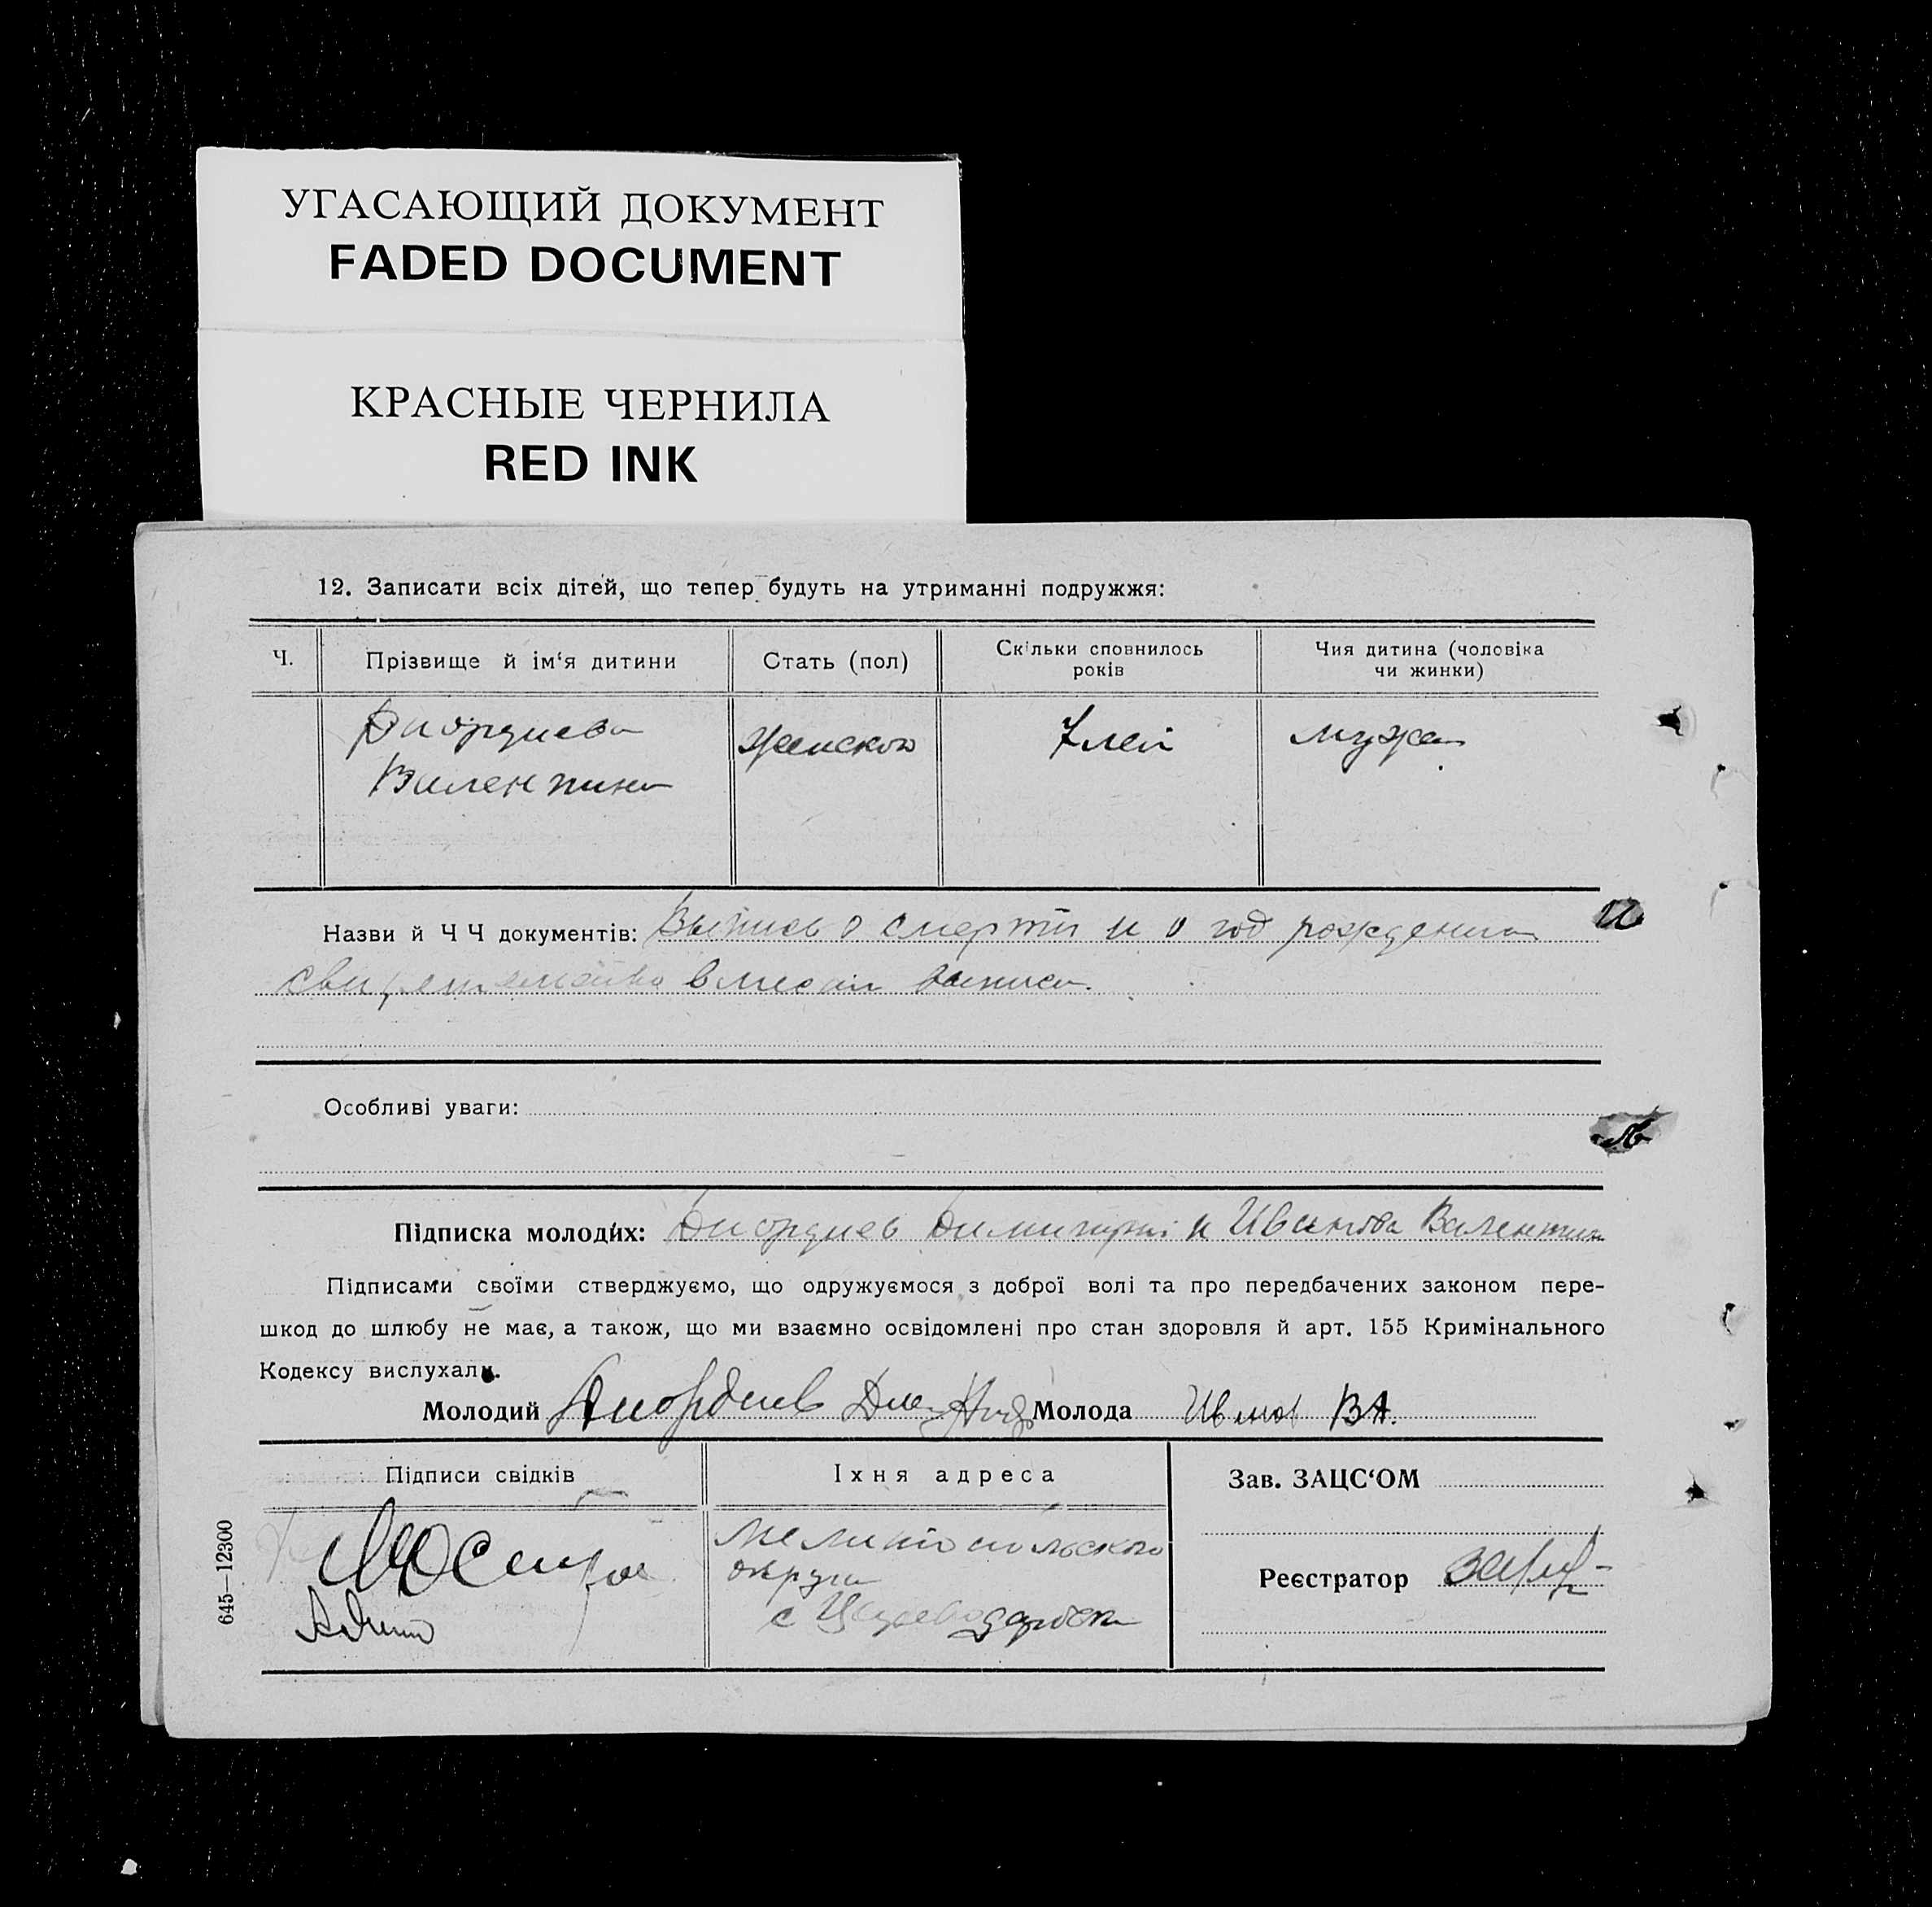 УГАСАЮЩИЙ ДОКУМЕНТ
FADED DOCUMENT
КРАСНЫЕ ЧЕРНИЛА
RED INK
12. Записати всіх дітей, що тепер будуть на утриманні подружжя:
Ч. Прізвище й ім‘я дитини Стать (пол) Скільки сповнилось років Чия дитина (чоловіка чи жинки)
Диордиева женского 7 лет мужа
Валентина
Назви й Ч Ч документів: Выпись о смерти и о год рождения
свидетельство выписи.
Особливі уваги:
Підписка молодих: Диордиев Димитрий и Иванова Валентина
Підписами своїми стверджуємо, що одружуємося з доброї волі та про передбачених законом пере-
шкод до шлюбу не має, а також, що ми взаємно освідомлені про стан здоровля й арт. 155 Кримінального
Кодексу вислухали.
Молодий Диордиев Молода В А.
Підписи свідків Їхня адреса Зав. ЗАЦС‘ОМ
Мелитопольского
округа
с
Реєстратор
645—12300